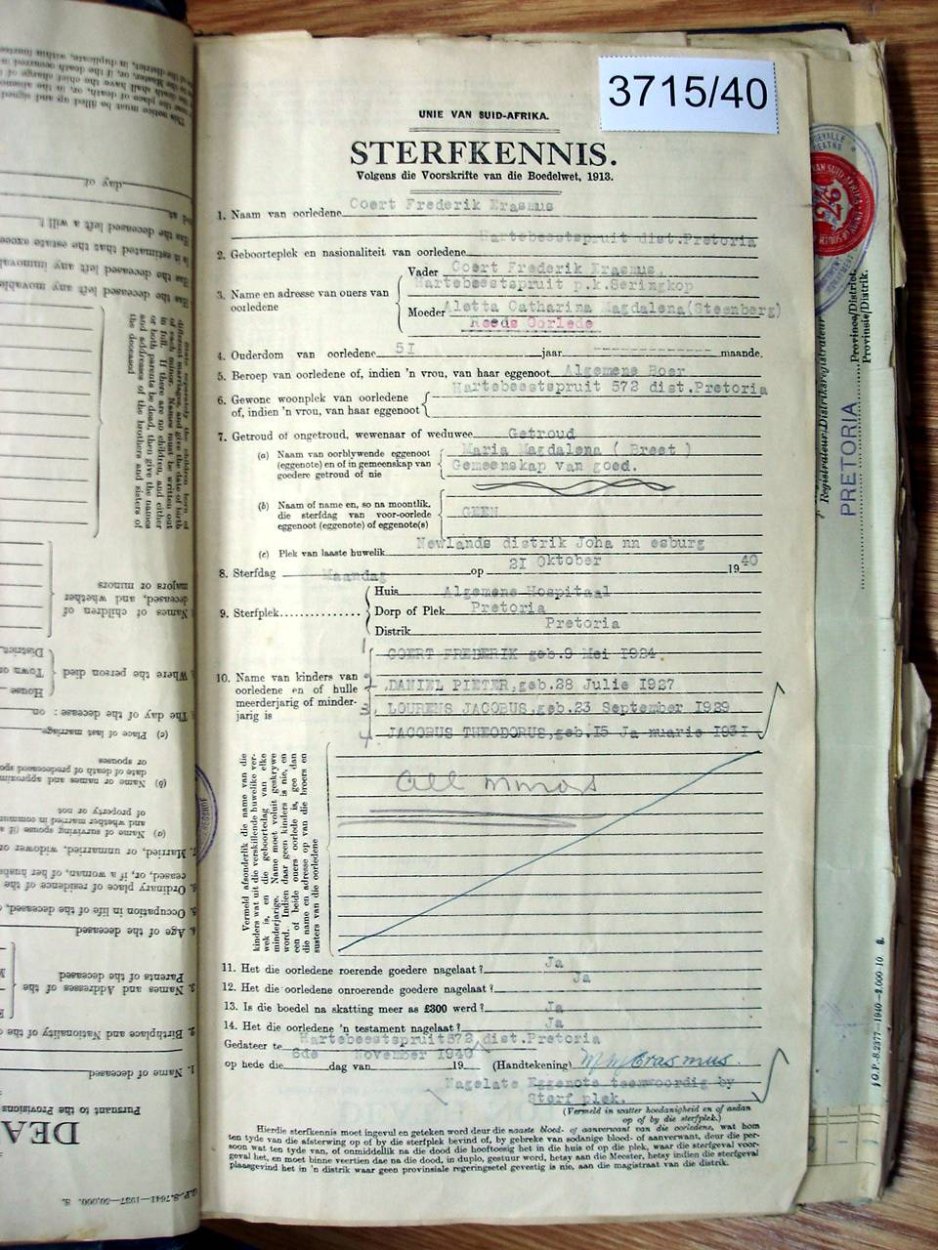 3715/40
UNIE VAN SUID-AFRIKA.
STERFKENNIS.
Volgens die Voorskrifte van die Boedelwet, 1913.
1. Naam van oorledene Coert Frederik Erasmus
Hartebeestspruit dist.Pretoria
2. Geboorteplek en nasionaliteit van oorledene
3. Name en adresse van ouers van oorledene
Vader Coert Frederik Erasmus.
Hartebeestspruit p.k.Seringkop
Moeder Aletta Catharina Magdalena(Steenberg)
Reeds Oorlede
4. Ouderdom van oorledene 51 jaar maande.
5. Beroep van oorledene of, indien 'n vrou, van haar eggenoot Algemene Boer
6. Gewone woonplek van oorledene of, indien 'n vrou, van haar eggenoot
Hartebeestspruit 572 dist.Pretoria
7. Getroud of ongetroud, wewenaar of weduwee Getroud
(a) Naam van oorblywende eggenoot (eggenote) en of in gemeenskap van goedere getroud of nie
Maria Magdalena ( Breet )
Gemeenskap van goed.
(b) Naam of name en, so na moontlik, die sterfdag van voor-oorlede eggenoot (eggenote) of eggenote(s)
GEEN
(c) Plek van laaste huwelik Newlands distrik Joha nn esburg
8. Sterfdag Maandag op 21 Oktober 1940
9. Sterfplek
Huis Algemene Hospitaal
Dorp of Plek Pretoria
Distrik Pretoria
10. Name van kinders van oorledene en of hulle meerderjarig of minderjarig is
1 COERT FREDERIK geb.9 Mei 1924.
2 DANIEL PIETER,geb.28 Julie 1927
3. LOURENS JACOBUS,geb.23 September 1929
4 JACOBUS THEODORUS,geb.15 Ja nuarie 1931
all minors
Vermeld afsonderlik die name van die
kinders wat uit die verskillende huwelike verwek is, en die geboortedag van elke
minderjarige. Name moet voluit geskrywe
word. Indien daar geen kinders is nie, en
een of beide ouers oorlede is, gee dan
die name en adresse op van die broers en
susters van die oorledene
11. Het die oorledene roerende goedere nagelaat? Ja
12. Het die oorledene onroerende goedere nagelaat? Ja
13. Is die boedel na skatting meer as £300 werd? Ja
14. Het die oorledene 'n testament nagelaat? Ja
Gedateer te Hartebeestspruit572 dist.Pretoria
op hede die 6de dag van November 1940 19 (Handtekening) M M Erasmus
Nagelate Eggenote teenwoordig by
Sterf plek.
(Vermeld in watter hoedanigheid en of aedan
op of by die sterfplek.)
Hierdie sterfkennis moet ingevul en geteken word deur die naaste bloed- of aanverwant van die oorledene, wat hom
ten tyde van die afsterwing op of by die sterfplek bevind of, by gebreke van sodanige bloed- of aanverwant, deur die persoon
wat ten tyde van, of onmiddellik na die dood die hooftoesig het in die huis of op die plek, waar die sterfgeval voorgeval
het, en moet binne veertien dae na die dood, in duplo, gestuur word, hetsy aan die Meester, hetsy indien die sterfgeval
plaasgevind het in 'n distrik waar geen provinsiale regeringsetel gevestig is nie, aan die magistraat van die distrik.
Registrateur/Distriksregistrateur
PRETORIA
Province/District.
Provinsie/Distrik.
G.P.-S.2377—1940—2,000-10. S.
This notice must be filled up and signed
day of
Has the deceased left a will?
Has the deceased left any movable
Names of children of
deceased, and whether
majors or minors
Where the person died
House
Town or
District
The day of the decease : on
(c) Place of last marriage
(b) Name or names and approxim
date of death of predeceased spo
or spouses
(a) Name of surviving spouse (if a
and whether married in commun
of property or not
7. Married, or unmarried, widower or
Ordinary place of residence of the
ceased, or, if a woman, of her husba
5. Occupation in life of the deceased,
4. Age of the deceased
3. Names and Addresses of the
Parents of the deceased
2. Birthplace and Nationality of the
1. Name of deceased
Pursuant to the Provisions
DEA
G.P.-S.7641—1937—50,000. S.